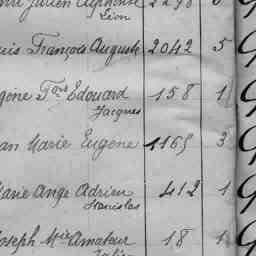 Julien Alphonse 2298 6
Léon
uis François Auguste 2042 5
gène Fois Edouard 158 1
Jacques
an Marie Eugène 1165 3
arie Ange Adrien 412 1
Stanislas
oseph Mie Amateur 18 1